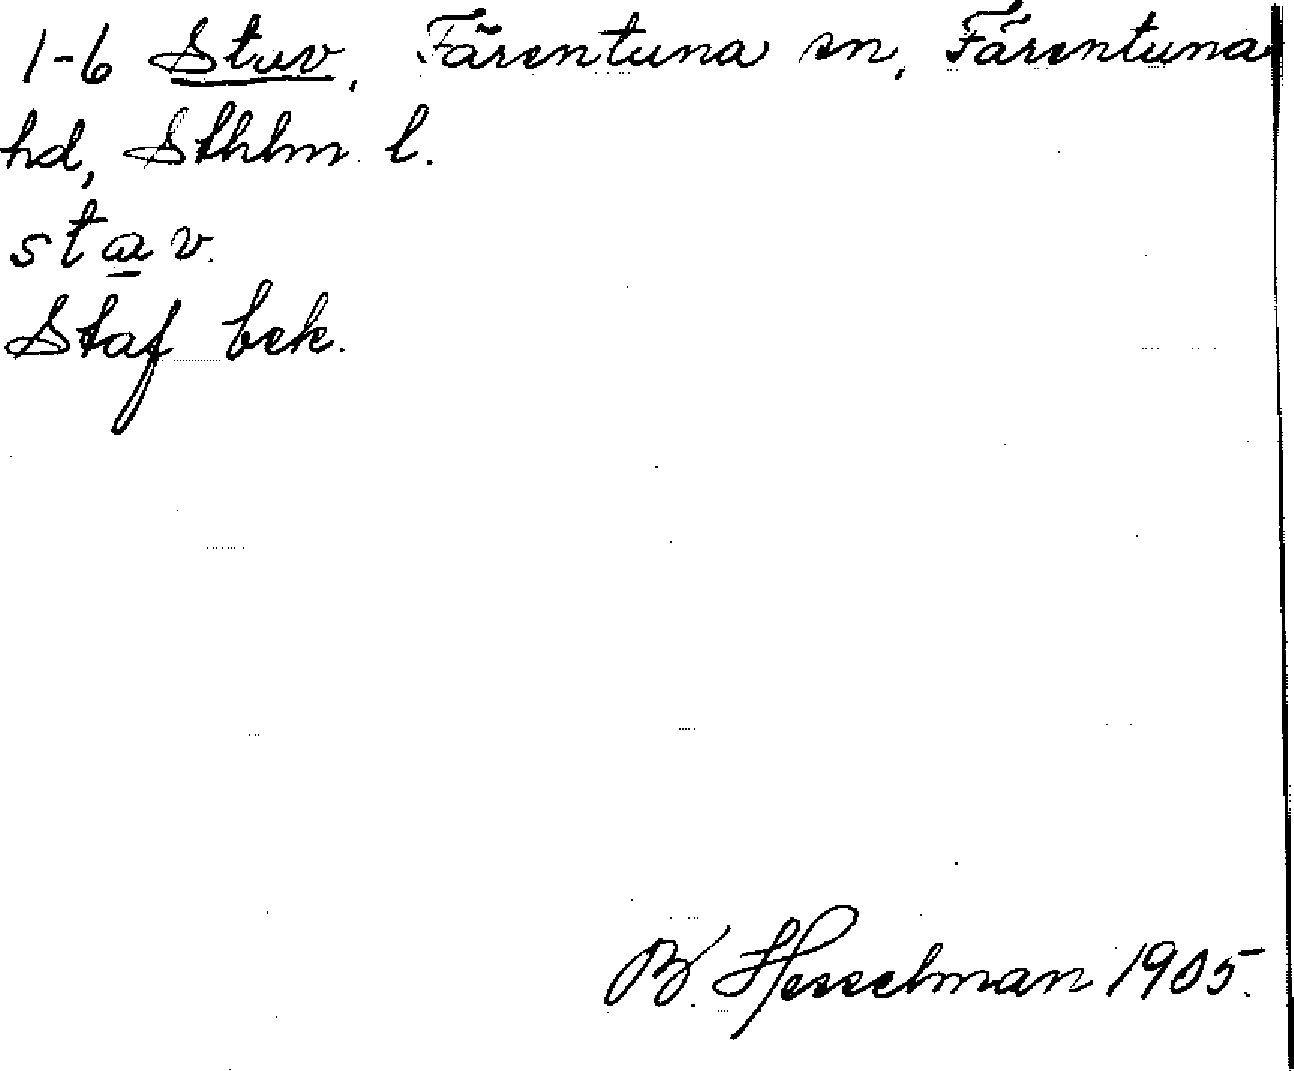 1-6 Stav, Färentuna sn, Färentuna
hd, Sthlm l.
stav.
Staf bek.
B. Hesselman 1905.